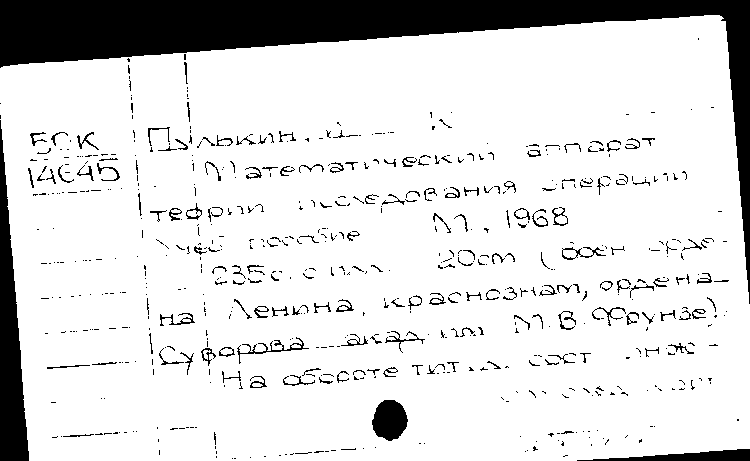 БСК Пулькин,
14645 Математический аппарат
теории исследования операций
Учеб пособие М., 1968
235с. с илл. 20cm (Воен орде-
на Ленина, краснознам, ордена
Суворова акад. им М.В. Фрунзе).
На обороте тит. л. сост инж-